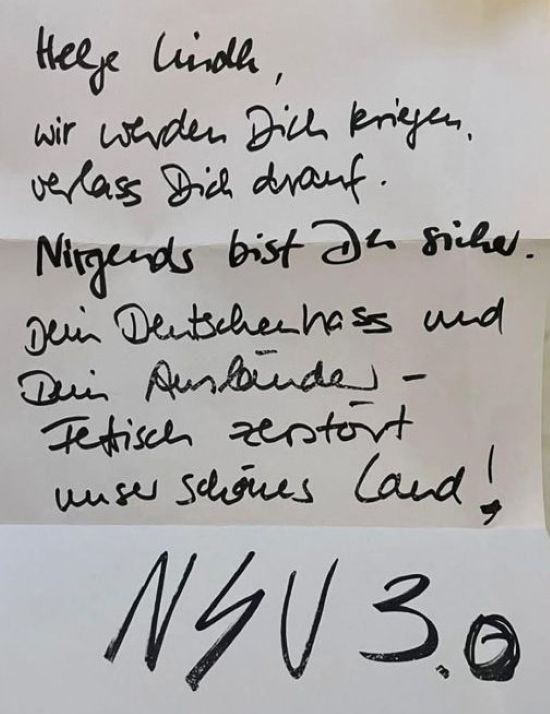 Helge Lindh,
wir werden Dich kriegen,
verlass Dich drauf.
Nirgends bist Du sicher.
Dein Deutschenhass und
Dein Ausländer-
Fetisch zerstört
unser schönes Land!
NSU 3.0